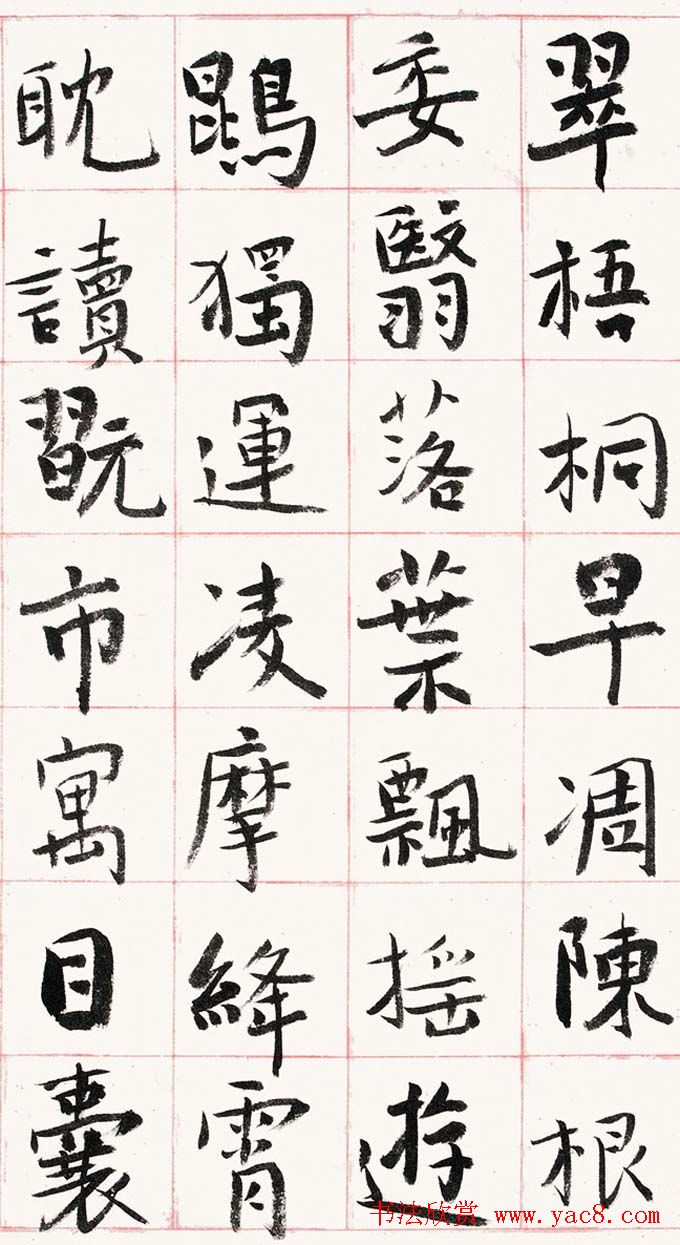 翠梧桐早凋陳根
委翳落葉飄搖遊
鵾獨運凌摩絳霄
耽讀翫市寓目囊
书法欣赏 www.yac8.com